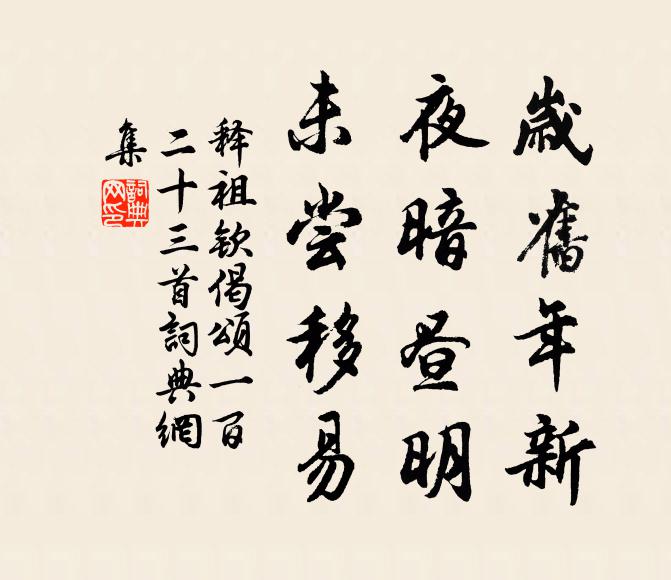 歲舊年新
夜暗昼明
未尝移易
释祖欽偈頌一百
二十三首詞典網
集
詞典
网印